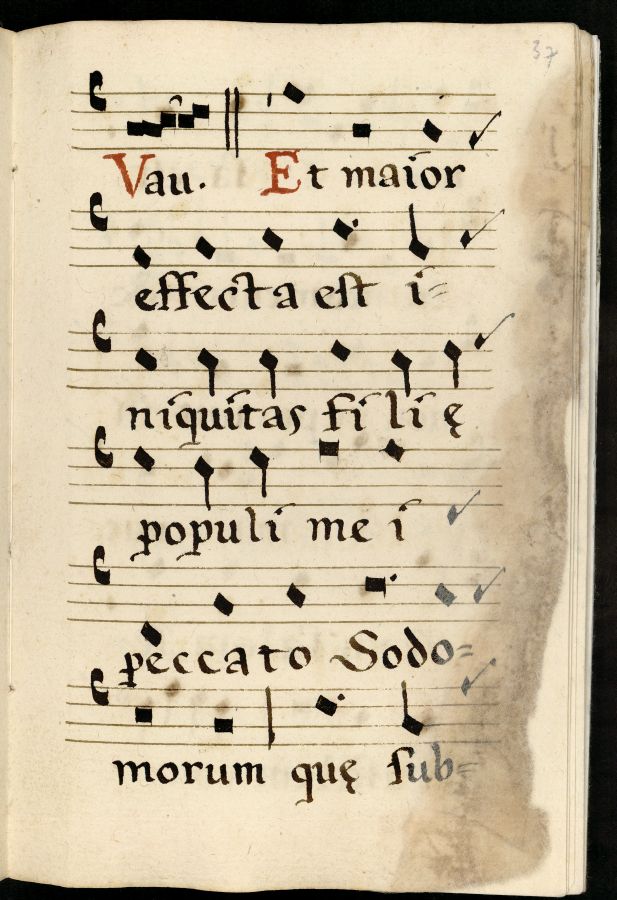 37
Vau. Et maior
effecta est i=
niquitas fi li ę
populi me i
peccato Sodo=
morum quę sub=